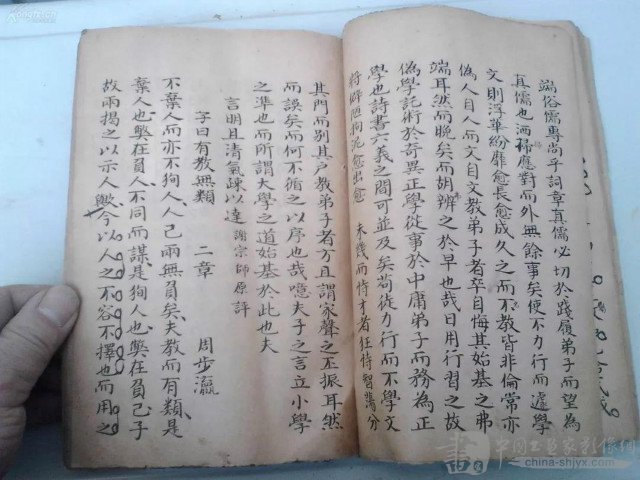 端俗儒專尚乎詞章真儒必切於踐履弟子而望為
真儒也洒掃應對而外無餘事矣使不力行而遽學
文則浮華紛靡愈長愈成久之而不教皆非倫常亦
偽人自人而文自文教弟子者卒自悔其始基之弗
端耳然而晚矣而胡辨之於早也哉日用行習之故
偽學託術於奇異正學從事於中庸弟子而務為正
學也詩書六義之間可並及矣苟徒力行而不學文
將僻陋拘泥愈出愈 未幾而恃才者狂恃智蕩分
其門而別其戶教弟子者方且謂家聲之丕振耳然
而誤矣而何不循之以序也哉噫夫子之言立小學
之準也而所謂大學之道始基於此也夫
言明且清氣疎以達 謝宗師原評
子曰有教無類 二章 周步瀛
不棄人而亦不狥人人己兩無負矣夫教而有類是
棄人也弊在負人不同而謀是狥人也弊在負己子
故兩揭之以示人歟今以人之不容不擇也而用之
kongfz.cn
中國書画家影像網
china-shjyx.com